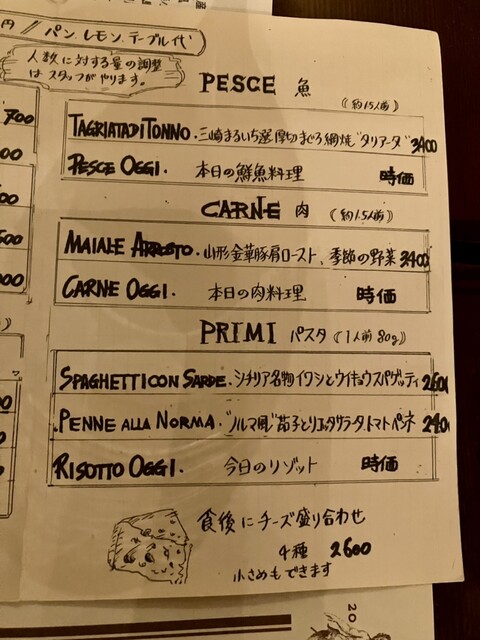 円 // パン、レモン、テーブル代
人数に対する量の調整
はスタッフがやります。
PESCE 魚
(約1.5人前)
TAGRIATA DI TONNO. 三崎まるいち産厚切まぐろ網焼"タリアータ" 3400
PESCE OGGI. 本日の鮮魚料理 時価
CARNE 肉 (約1.5人前)
MAIALE ARROSTO. 山形金華豚肩ロースト、季節の野菜 3400
CARNE OGGI. 本日の肉料理 時価
PRIMI パスタ (1人前 80g)
SPAGHETTI CON SARDE. シチリア名物イワシとウイキョウスパゲッティ 2600
PENNE ALLA NORMA. "ノルマ風"茄子とリコッタサラータ、トマトペンネ 2400
RISOTTO OGGI. 今日のリゾット 時価
食後にチーズ盛り合わせ
4種 2600
小さめもできます
700
20